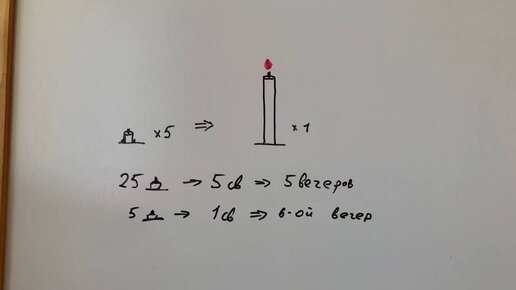 x5 => x1
25 -> 5 св => 5 вечеров
5 -> 1 св => 6-ой вечер